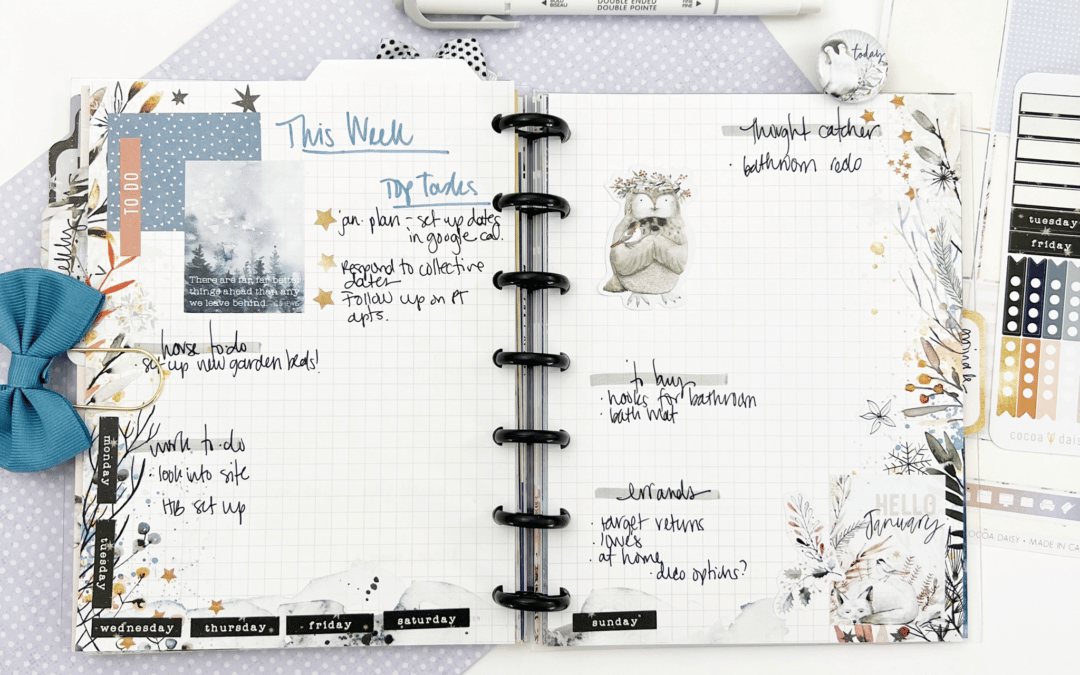 BOLD
BISEAU
DOUBLE ENDED
DOUBLE POINTE
FINE
FINE
today
This Week
TO DO
Top Tasks
jan. plan - set up dates
in google cal.
Respond to collective
dates
Follow up on PT
apts.
There are far, far better
things ahead than any
we leave behind.
house to do
set up new garden beds!
monday
work to do
· look into site
HB set up
tuesday
wednesday
thursday
friday
saturday
Thought catcher
· bathroom redo
to buy
· hooks for bathroom
· bath mat
errands
· target returns
· lowes
· at home
· deco options?
HELLO
January
sunday
tuesday
friday
cocoa daisy
COCOA DAISY • MADE IN CA